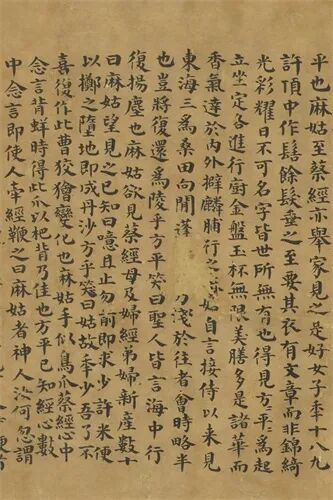 平也麻姑至蔡經亦舉家見之是好女子年十八九
許頂中作髻餘髮垂之至要其衣有文章而非錦綺
光彩耀日不可名字皆世所無有也得見方〻平〻為起
立坐定各進行廚金盤玉杯無限美膳多是諸華而
香氣達於內外擗麟脯行之自言接侍以來見
東海三為桑田向間蓬乃淺於往者會時略半
也豈將復還為陵乎方平笑曰聖人皆言海中行
復揚塵也麻姑欲見蔡經母及婦經弟婦新產數十
日麻姑望見之已知曰噫且止勿前即求少許米便
以擲之墮地即成丹沙方平笑曰姑故年少吾了不
喜復作此曹狡獪變化也麻姑手似鳥爪蔡經心中
念言背蛘時得此爪以杷背乃佳也方平已知經心
中念言即使人牽經鞭之曰麻姑者神人汝何忽謂